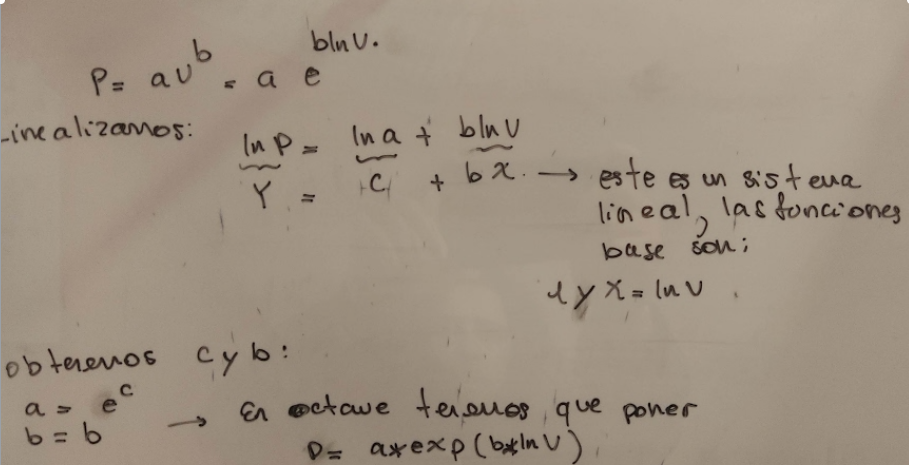 P = a v^b = a e^{b ln v}.
Linealizamos:
ln P = ln a + b ln v
Y = C + b x. → este es un sistema
lineal, las funciones
base son:
1 y x = ln v.
obtenemos c y b:
a = e^c
b = b → En octave tenemos que poner
p = a*exp(b*ln v)